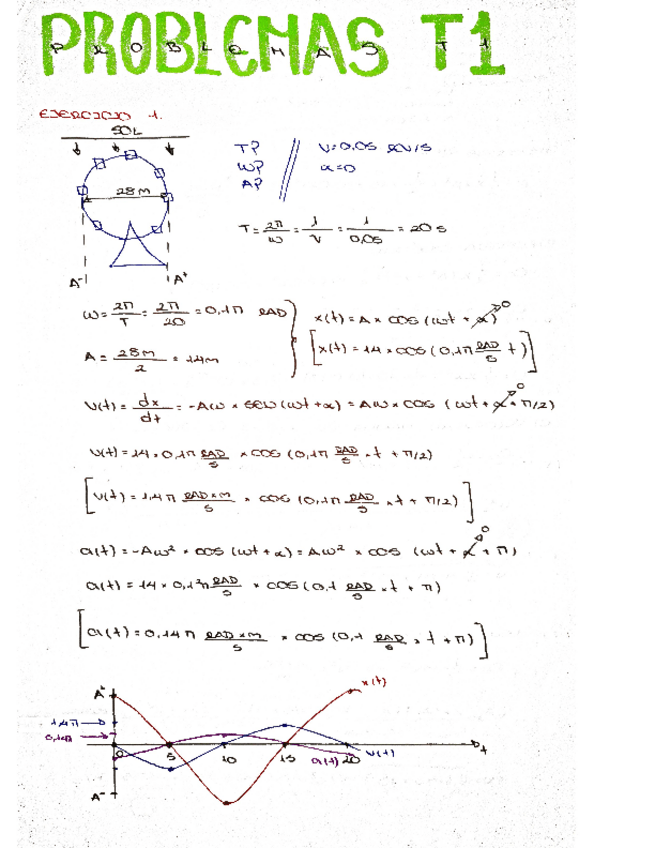 PROBLEMAS T1
PROBLEMAS T1
EJERCICIO 1.
SOL
28m
A⁻ A⁺
T? V=0.05 REV/S
W? α=0
A?
T = 2π/ω = 1/V = 1/0,05 = 20 s
ω = 2π/T = 2π/20 = 0,1π RAD
A = 28m/2 = 14m
x(t) = A × cos (ωt + α) 0
[x(t) = 14 × cos (0,1π RAD/s t)]
v(t) = dx/dt = -Aω × sen (ωt+α) = Aω × cos (ωt + α + π/2) 0
v(t) = 14 × 0,1π RAD/s × cos (0,1π RAD/s × t + π/2)
[v(t) = 1,4π RAD×m/s × cos (0,1π RAD/s × t + π/2)]
a(t) = -Aω² × cos (ωt+α) = Aω² × cos (ωt + α + π) 0
a(t) = 14 × 0,1²π RAD/s × cos (0,1 RAD/s × t + π)
[a(t) = 0,14π RAD×m/s × cos (0,1 RAD/s × t + π)]
A⁺ x(t)
1,4π
0,14π
0 5 10 15 20 t
a(t) v(t)
A⁻